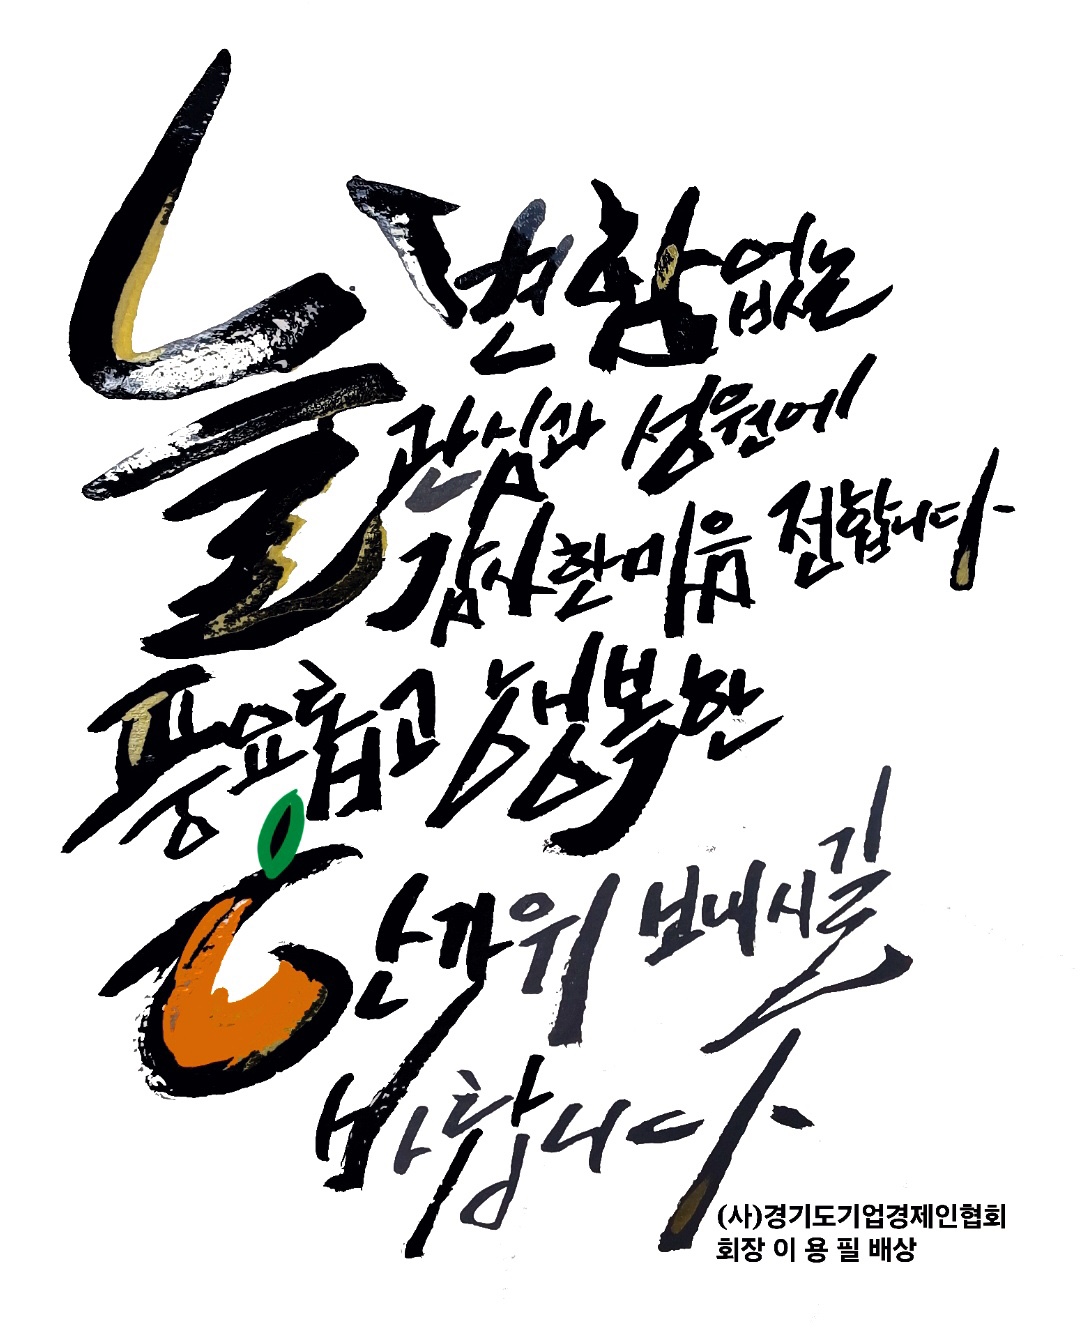 늘 변함없는
관심과 성원에
감사한 마음 전합니다
풍요롭고 행복한
한가위 보내시길
바랍니다
(사)경기도기업경제인협회
회장 이 용 필 배상